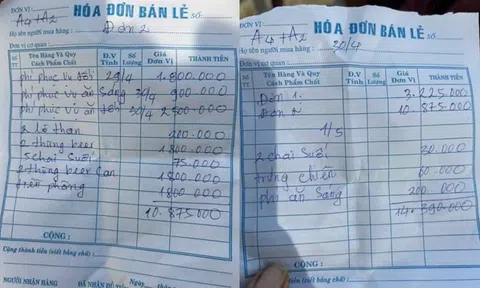 ĐƠN VỊ: A4+A2
HÓA ĐƠN BÁN LẺ SỐ
Họ tên người mua hàng: Đơn 2
Đơn vị cơ quan:
Số TT
Tên Hàng Và Quy Cách Phẩm Chất
Đ.V Tính
Số Lượng
Giá Đơn Vị
THÀNH TIỀN
phí phục vụ tối 29/4 1.800.000
phí phục vụ ăn sáng 30/4 900.000
phí phục vụ ăn tối 30/4 2300.000
2 lò than 200.000
2 thùng beer 1800.000
5 chai suối 75.000
2 thùng beer can 1800.000
trên phòng 1800.000
10.875.000
CỘNG:
Cộng thành tiền (viết bằng chữ):
Ngày
NGƯỜI NHẬN HÀNG
ĐÃ NHẬN ĐỦ
ĐƠN VỊ: A4+A2
HÓA ĐƠN BÁN LẺ SỐ
Họ tên người mua hàng: 30/4
Đơn vị cơ quan:
Số TT
Tên Hàng Và Quy Cách Phẩm Chất
Đ.V Tính
Số Lượng
Giá Đơn Vị
THÀNH TIỀN
Đơn 1. 3.225.000
Đơn 2 10.875.000
1/5
2 chai suối 30.000
trứng chiên 60.000
phí ăn sáng 200.000
14.390.000
CỘNG:
Cộng thành tiền (viết bằng chữ):